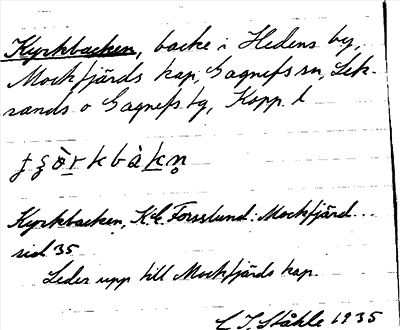 Kyrkbacken, backe i Hedens by,
Mockfjärds kap, Gagnefs sn, Lek-
sands o Gagnefs tg, Kopp. l
Kyrkbacken, K.E. Forsslund: Mockfjärd...
sid 35
Leder upp till Mockfjärds kap.
C I. Ståhle 1935